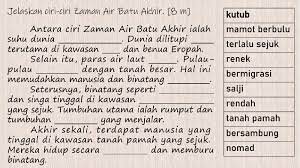 Jelaskan ciri-ciri Zaman Air Batu Akhir. [8 m]
Antara ciri Zaman Air Batu Akhir ialah
suhu dunia ______. Dunia dilitupi ______
terutama di kawasan ____ dan benua Eropah.
Selain itu, paras air laut ______. Pulau-
pulau ______ dengan tanah besar. Hal ini
memudahkan manusia dan binatang ______.
Seterusnya, binatang seperti ______
dan singa tinggal di kawasan ______
yang sejuk. Tumbuhan utama ialah rumput dan
tumbuhan ______ yang menjalar.
Akhir sekali, terdapat manusia yang
tinggal di kawasan tanah pamah yang sejuk.
Mereka hidup secara ______ dan memburu
binatang.
kutub
mamot berbulu
terlalu sejuk
renek
bermigrasi
salji
rendah
tanah pamah
bersambung
nomad